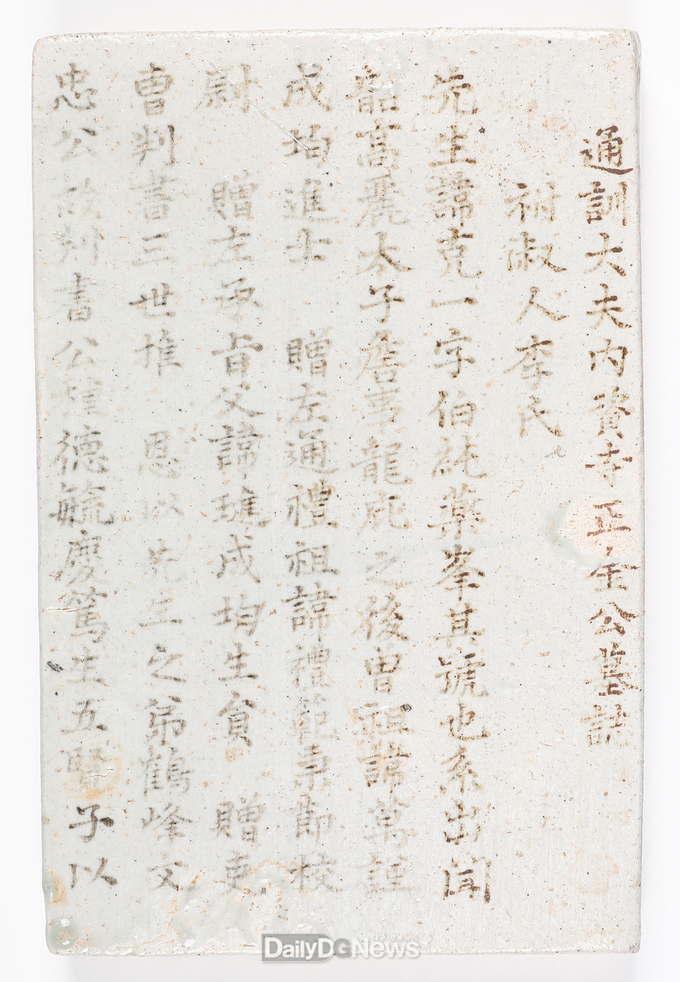 通訓大夫内資寺正金公墓誌
祔淑人李氏
先生諱克一字伯純藥峯其號也系出聞
韶高麗太子詹事龍庇之後曾祖諱萬謹
成均進士 贈左通禮祖諱禮範秉節校
尉 贈左承旨父諱璡成均生員 贈吏
曺判書三世推 恩以先生之弟鶴峰文
忠公故判書公種德毓慶篤生五賢子以
DailyDGNews